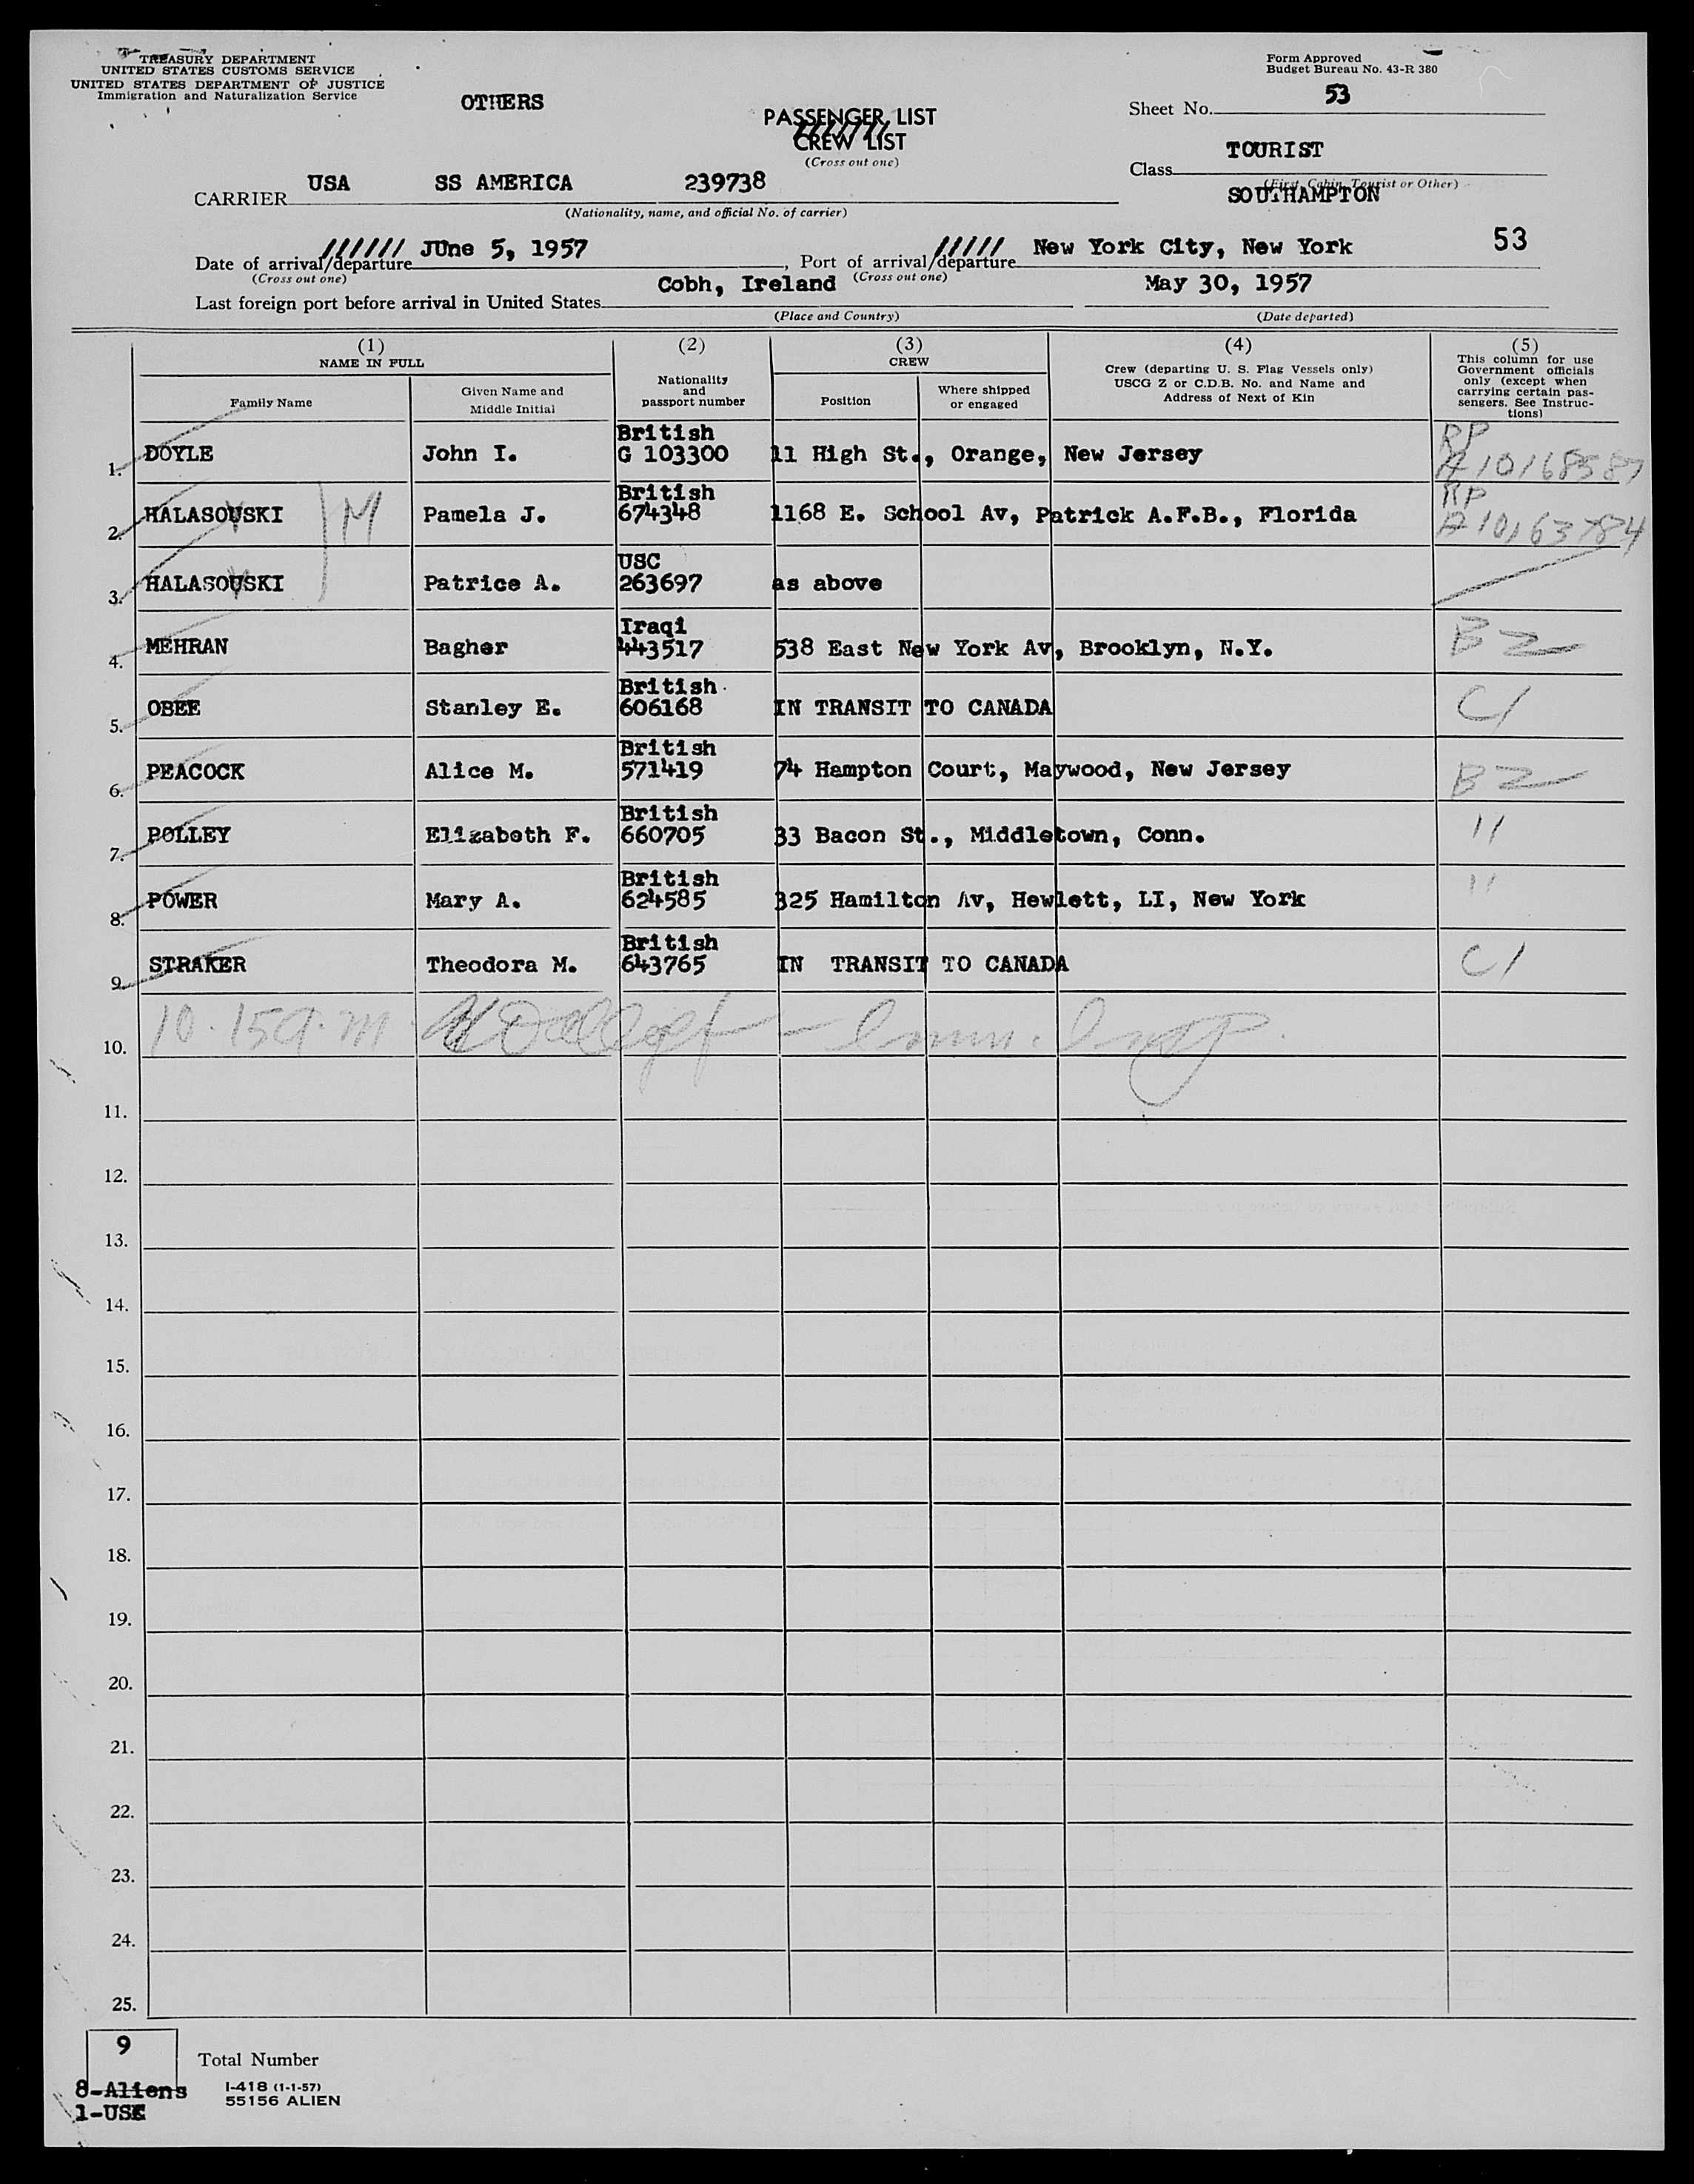 TREASURY DEPARTMENT
UNITED STATES CUSTOMS SERVICE
UNITED STATES DEPARTMENT OF JUSTICE
Immigration and Naturalization Service
OTHERS
PASSENGER LIST
CREW LIST
(Cross out one)
Form Approved
Budget Bureau No. 43-R 380
Sheet No. 53
Class TOURIST
(First, Cabin, Tourist or Other)
SOUTHAMPTON
CARRIER USA SS AMERICA 239738
(Nationality, name, and official No. of carrier)
Date of arrival/departure JUne 5, 1957, Port of arrival/departure New York City, New York 53
(Cross out one) (Cross out one)
Last foreign port before arrival in United States Cobh, Ireland May 30, 1957
(Place and Country) (Date departed)
(1) NAME IN FULL
Family Name
Given Name and Middle Initial
(2) Nationality and passport number
(3) CREW
Position
Where shipped or engaged
(4) Crew (departing U. S. Flag Vessels only) USCG Z or C.D.B. No. and Name and Address of Next of Kin
(5) This column for use Government officials only (except when carrying certain passengers. See Instructions)
1. DOYLE John I. British G 103300 11 High St., Orange, New Jersey RP A10168587
2. HALASOUSKI M Pamela J. British 674348 1168 E. School Av, Patrick A.F.B., Florida RP A10163784
3. HALASOUSKI Patrice A. USC 263697 as above
4. MEHRAN Bagher Iraqi 443517 538 East New York Av, Brooklyn, N.Y. B2
5. OBEE Stanley E. British 606168 IN TRANSIT TO CANADA C1
6. PEACOCK Alice M. British 571419 74 Hampton Court, Maywood, New Jersey B2
7. POLLEY Elizabeth F. British 660705 33 Bacon St., Middletown, Conn. "
8. POWER Mary A. British 624585 325 Hamilton Av, Hewlett, LI, New York "
9. STRAKER Theodora M. British 643765 IN TRANSIT TO CANADA C1
10. 10.15a.m. Imm. Insp
11.
12.
13.
14.
15.
16.
17.
18.
19.
20.
21.
22.
23.
24.
25.
9 Total Number
8-Aliens
1-USC
I-418 (1-1-57)
55156 ALIEN